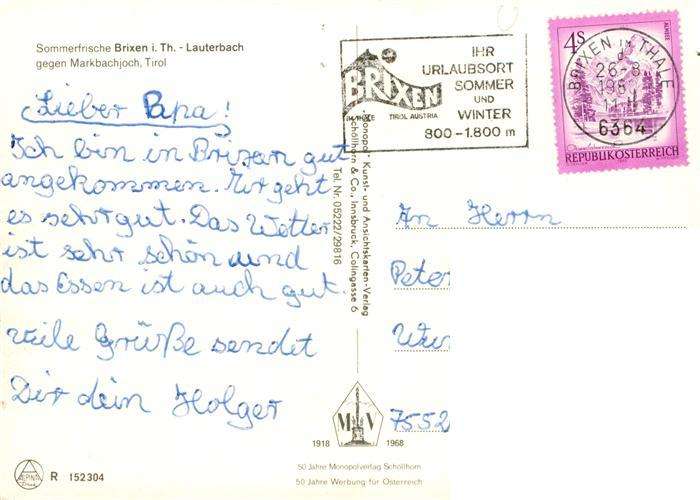 Sommerfrische Brixen i. Th. - Lauterbach
gegen Markbachjoch, Tirol
Lieber Papa!
Ich bin in Brixen gut
angekommen. Mir geht
es sehr gut. Das Wetter
ist sehr schön und
das Essen ist auch gut.
viele Grüße sendet
Dir dein Holger
R 152304
Monopol- Kunst- und Ansichtskarten-Verlag
Schöllhorn & Co., Innsbruck, Colingasse 6
Tel. Nr. 05222/29816
MV
1918 1968
50 Jahre Monopolverlag Schöllhorn
50 Jahre Werbung für Österreich
BRIXEN
IM THALE
TIROL AUSTRIA
IHR
URLAUBSORT
SOMMER
UND
WINTER
800-1.800 m
4S
BRIXEN IM THALE
6364
REPUBLIK ÖSTERREICH
An Herrn
Peter
7552